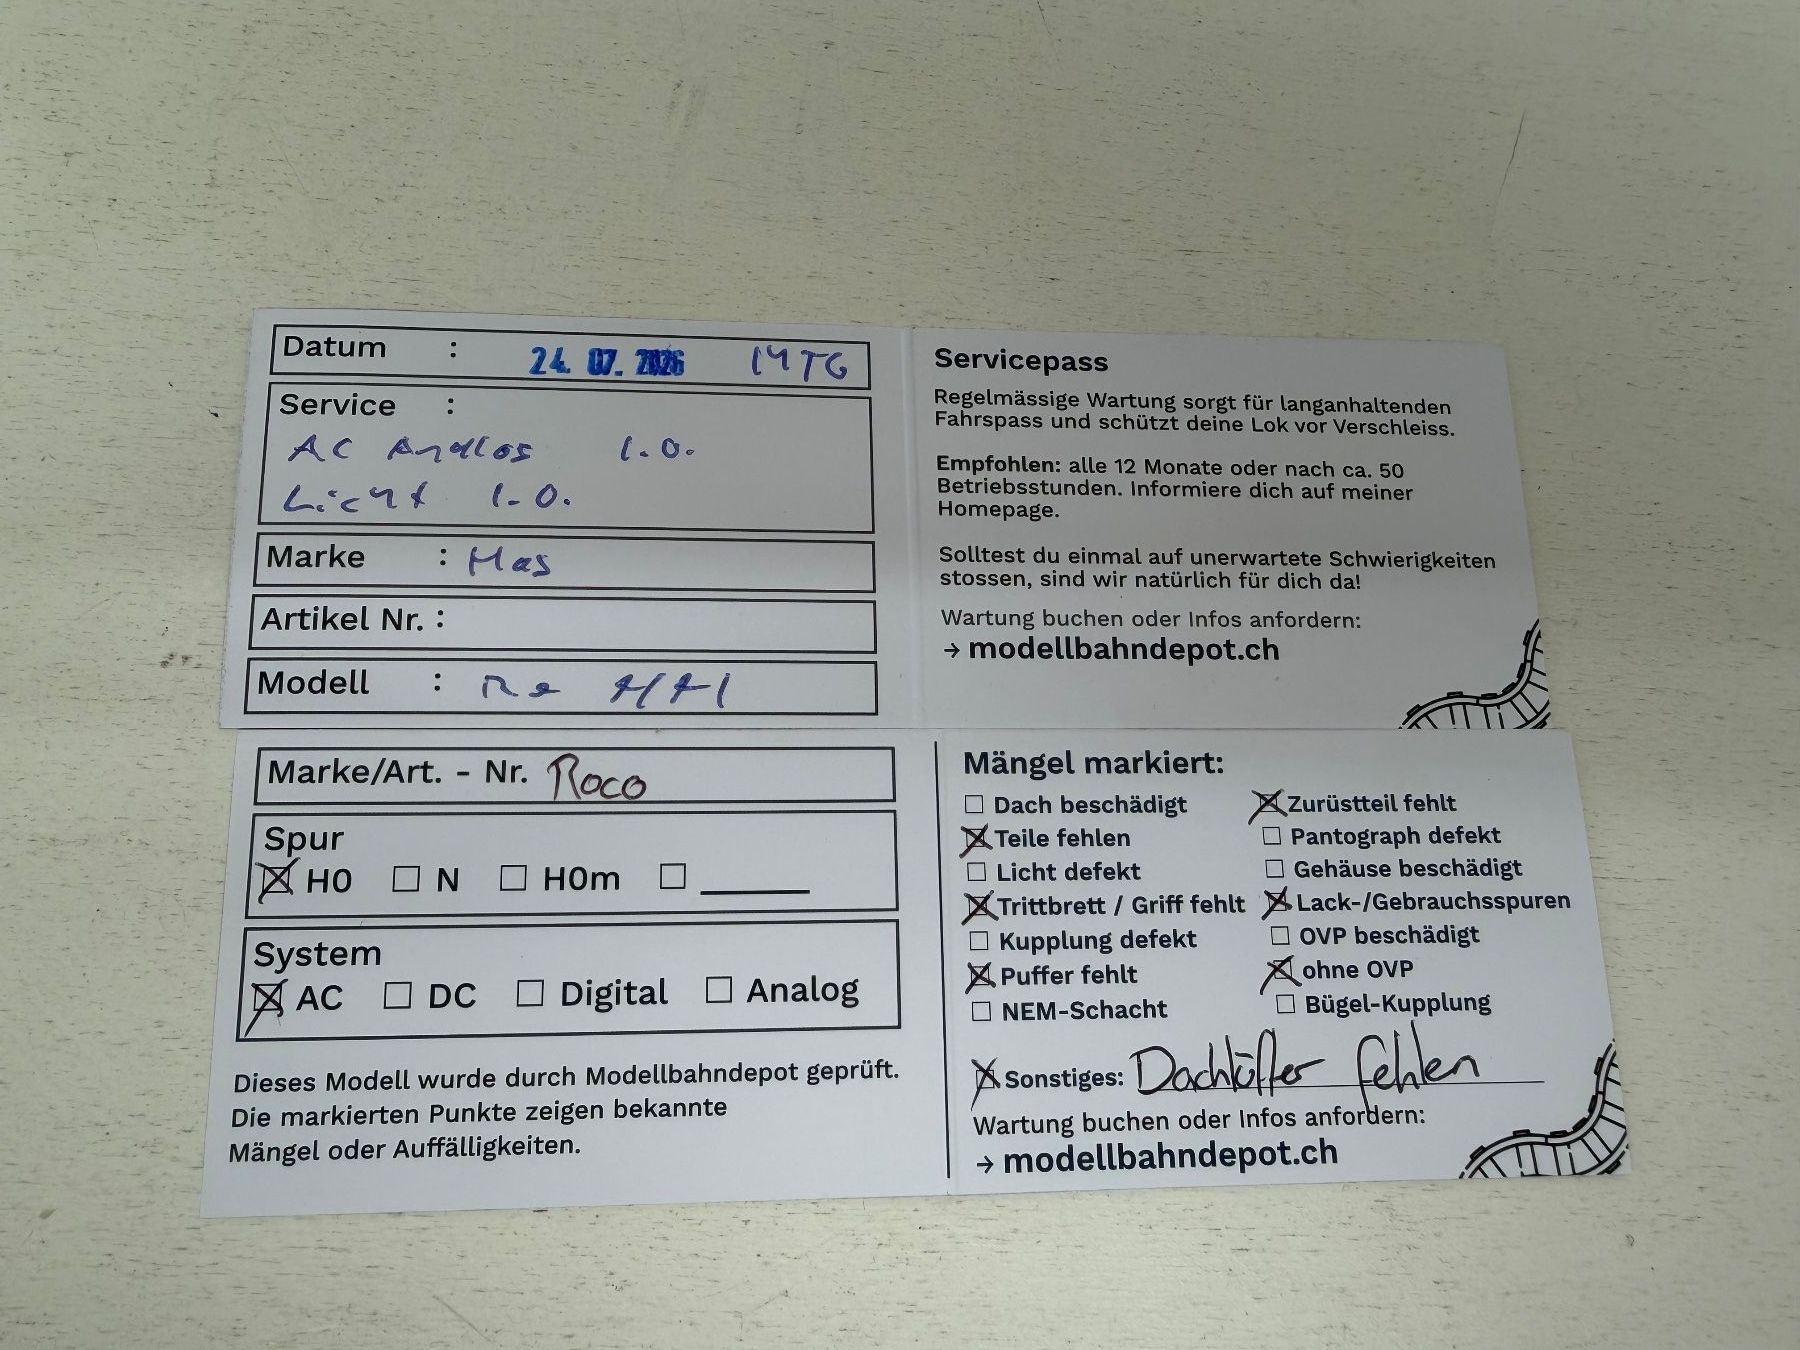 Datum : 24. 07. 2026
Service :
AC Analog I.O.
Licht I.O.
Marke : Has
Artikel Nr. :
Modell : Re 4/4 I
Servicepass
Regelmässige Wartung sorgt für langanhaltenden
Fahrspass und schützt deine Lok vor Verschleiss.
Empfohlen: alle 12 Monate oder nach ca. 50
Betriebsstunden. Informiere dich auf meiner
Homepage.
Solltest du einmal auf unerwartete Schwierigkeiten
stossen, sind wir natürlich für dich da!
Wartung buchen oder Infos anfordern:
→ modellbahndepot.ch
Marke/Art. - Nr. Roco
Spur
H0 N H0m
System
AC DC Digital Analog
Dieses Modell wurde durch Modellbahndepot geprüft.
Die markierten Punkte zeigen bekannte
Mängel oder Auffälligkeiten.
Mängel markiert:
Dach beschädigt Zurüstteil fehlt
Teile fehlen Pantograph defekt
Licht defekt Gehäuse beschädigt
Trittbrett / Griff fehlt Lack-/Gebrauchsspuren
Kupplung defekt OVP beschädigt
Puffer fehlt ohne OVP
NEM-Schacht Bügel-Kupplung
Sonstiges: Dachlüfter fehlen
Wartung buchen oder Infos anfordern:
→ modellbahndepot.ch